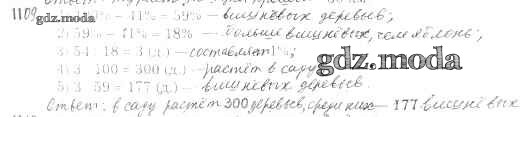 1109 gdz.moda % - 41% = 59% - вишнёвых деревьев;
2) 59% - 41% = 18% - больше вишнёвых, чем яблонь;
3) 54 : 18 = 3 (д.) - составляет 1%;
4) 3 100 = 300 (д.) - растёт в саду
gdz.moda
5) 3 59 = 177 (д.) - вишнёвых деревьев.
Ответ: в саду растёт 300 деревьев, среди них - 177 вишнёвых